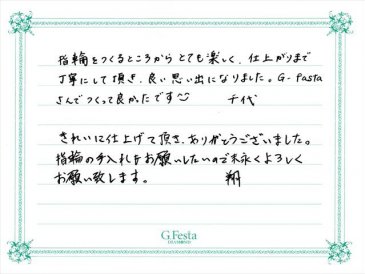 指輪をつくるところからとても楽しく、仕上がりまで
丁寧にして頂き、良い思い出になりました。G-Fasta
さんでつくって良かったです
千代
きれいに仕上げて頂き、ありがとうございました。
指輪の手入れをお願いしたいので末永くよろしく
お願い致します。
翔
G.Festa
DIAMOND